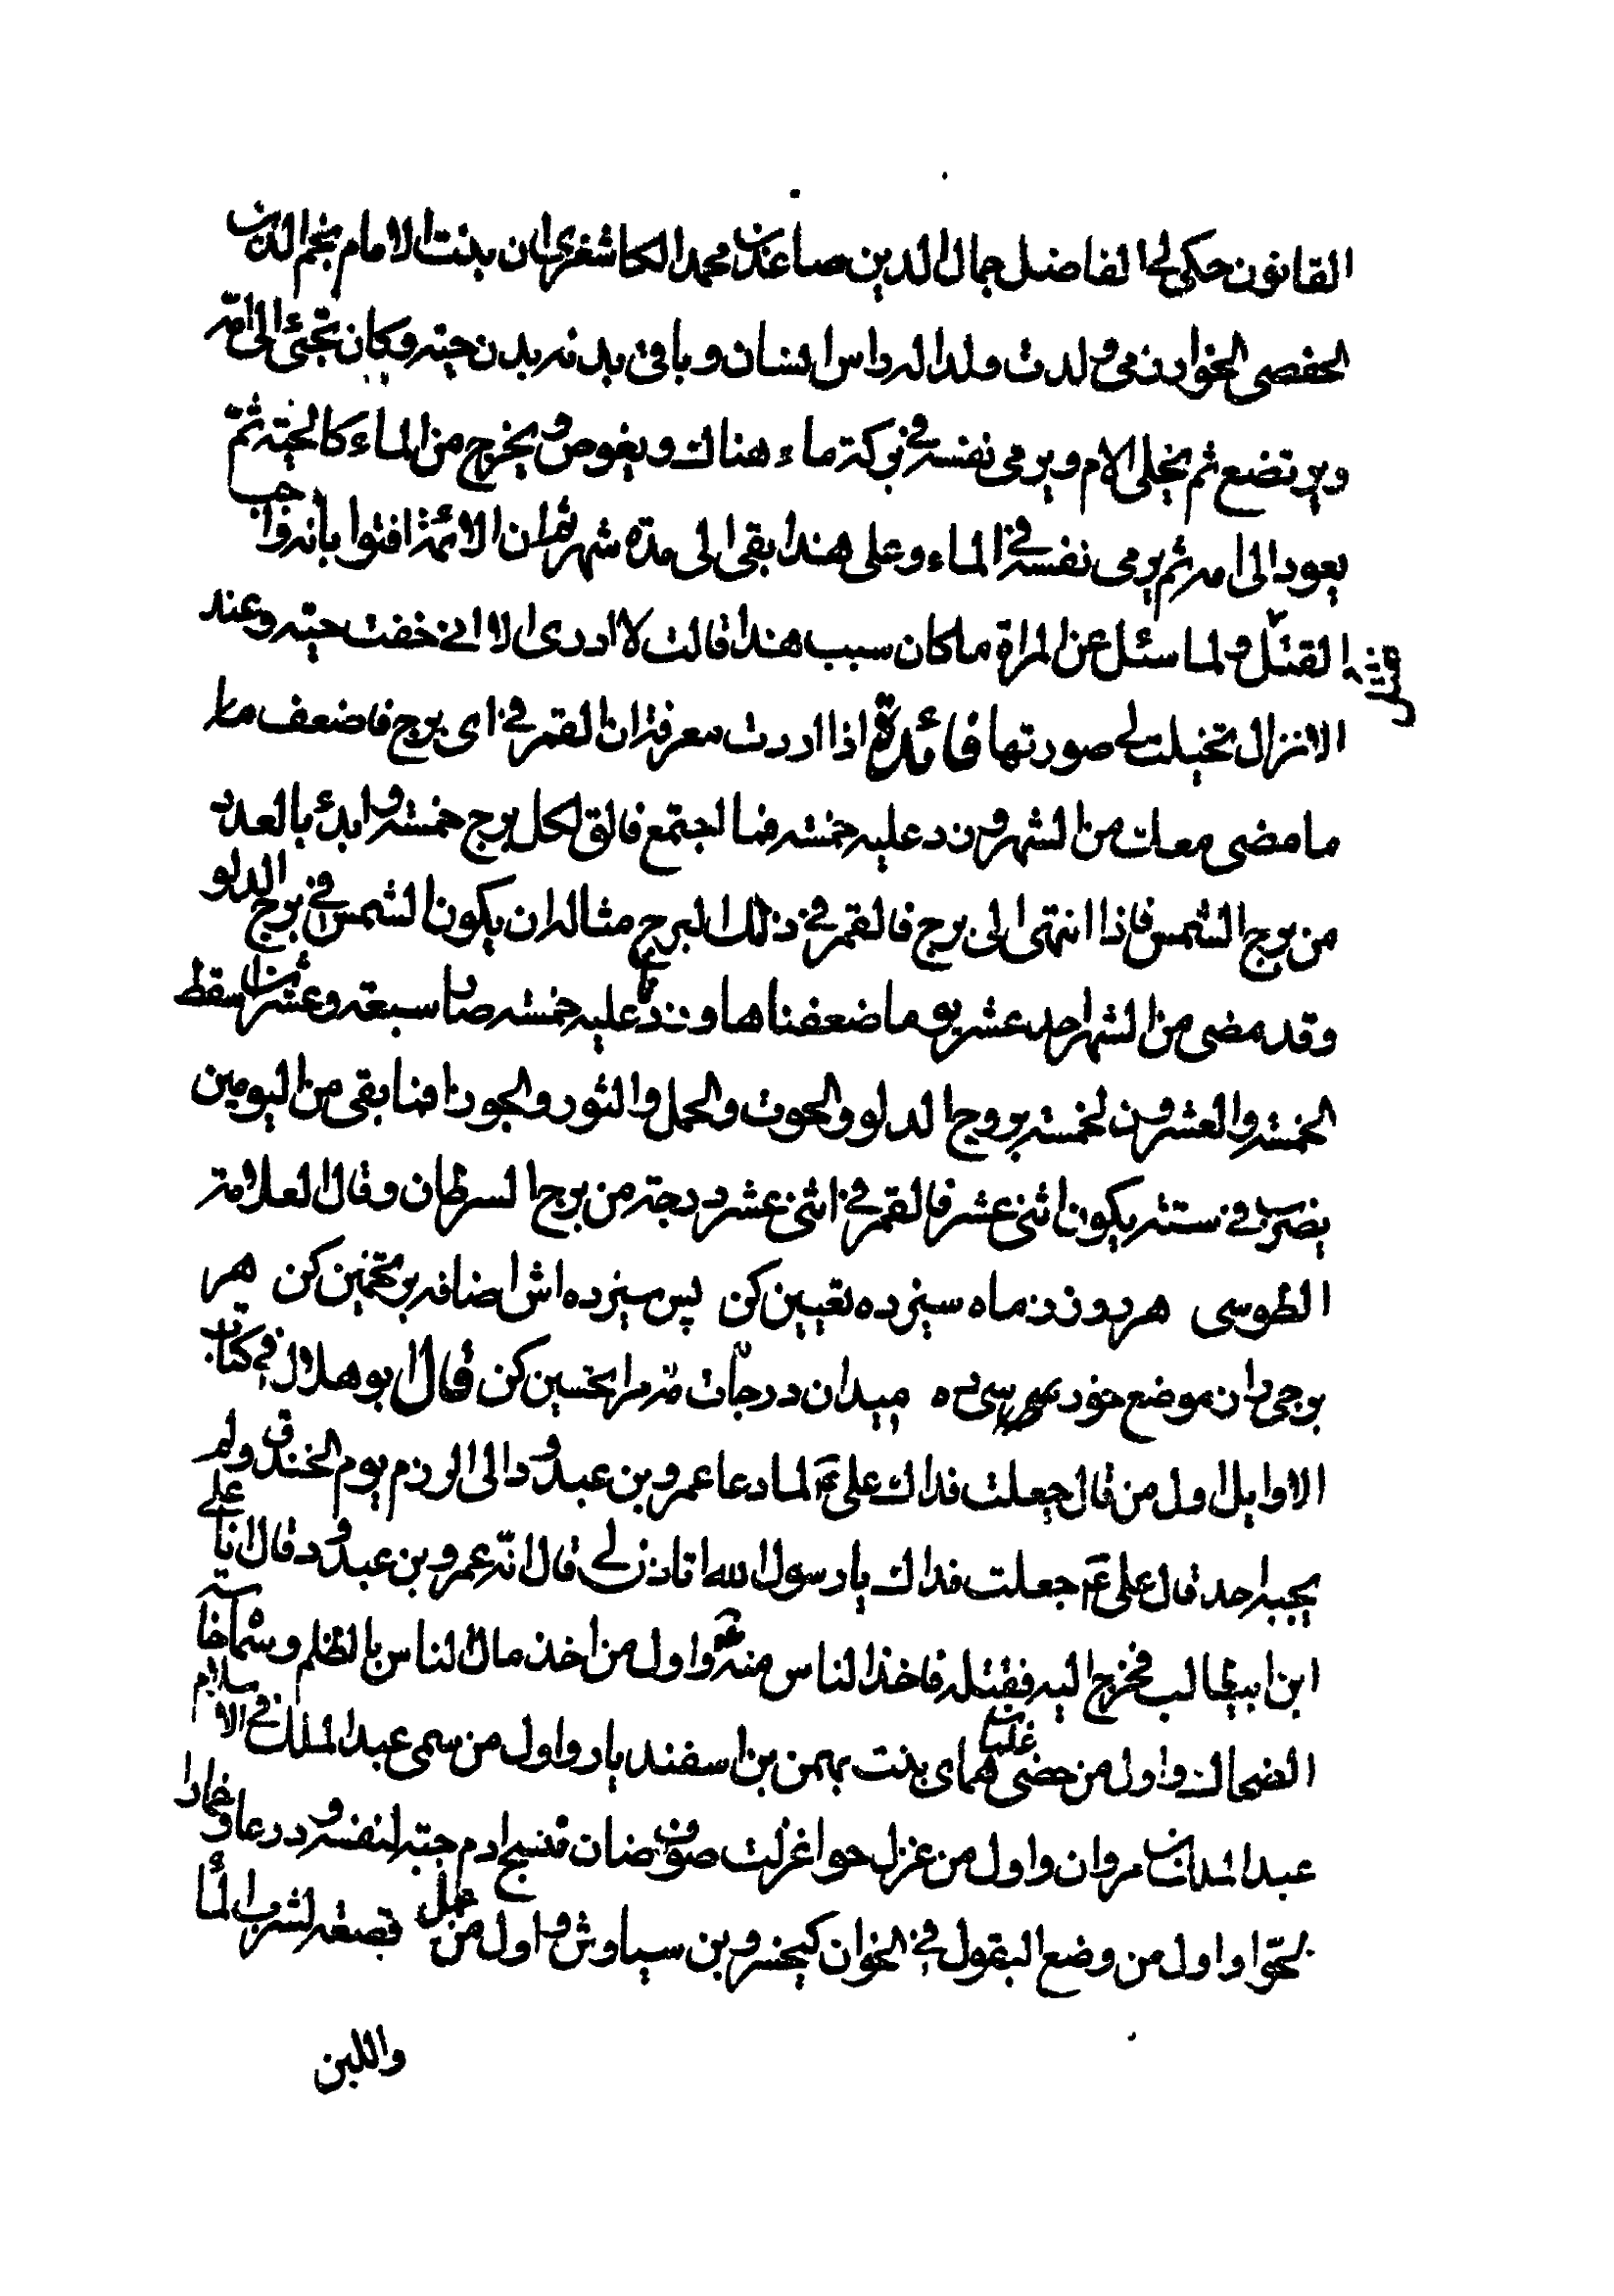 القانون حكى لى الفاضل جمال الدين صاعد بن محمد الكاشغرى ان بنت الامام نجم الدين
الحفصى الخوارزمى ولدت ولدا له راس انسان وباقى بدنه بدن حية وكان تجئ الى امه
ويرتضع ثم يخلى الام ويرمى نفسه فى بركة ماء هناك ويغوص ويخرج من الماء كالحية ثم
يعود الى امه ثم يرمى نفسه فى الماء وعلى هذا بقى الى مدة شهر ثم ان الائمة افتوا بانه واجب
القتل ولما سئل عن المراة ما كان سبب هذا قالت لا ادرى الا انى خفت حية وعند
الانزال تخيلت لى صورتها فائدة اذا اردت معرفة ان القمر فى اى برج فاضعف ما
ما مضى معك من الشهر وزد عليه خمسة فما اجتمع فالق لكل برج خمسة وابدئ بالعدد
من برج الشمس فاذا انتهى الى برج فالقمر فى ذلك البرج مثاله ان يكون الشمس فى برج الدلو
وقد مضى من الشهر احد عشر يوما ضعفناها وزدنا عليه خمسة صار سبعة وعشرين سقط
الخمسة والعشرون لخمسة بروج الدلو والحوت والحمل والثور والجوزا فما بقى من اليومين
يضرب فى ستة يكون اثنى عشر فالقمر فى اثنى عشر درجة من برج السرطان وقال العلامة
الطوسى هر روز زماه سيزده تعيين كن پس سيزده اش اضافه بر تخمين كن هر
برجى دان موضع خود سى ده ميدان درجات قمر را تحسين كن قال ابو هلال فى كتاب
الاوايل اول من قال جعلت فداك على ع لما دعا عمرو بن عبدود الى الرزم يوم الخندق ولم
يجبه احد قال على ع جعلت فداك يا رسول الله اتاذن لى قال انه عمرو بن عبدود قال انا على
ابن ابيطالب فخرج اليه فقتله فاخذ الناس منه واول من اخذ مال الناس بالظلم
الضحاك واول من هماى بنت بهمن بن اسفنديار واول من سمى عبد الملك فى الاسلام
عبد الملك بن مروان واول من غزل حوا غزلت صوف ضان فنسج ادم جبة لنفسه ودرعا وخمارا
لحوا واول من وضع البقول فى الخوان كيخسرو بن سياوش واول من عمل قصعة لشرب الماء
واللبن